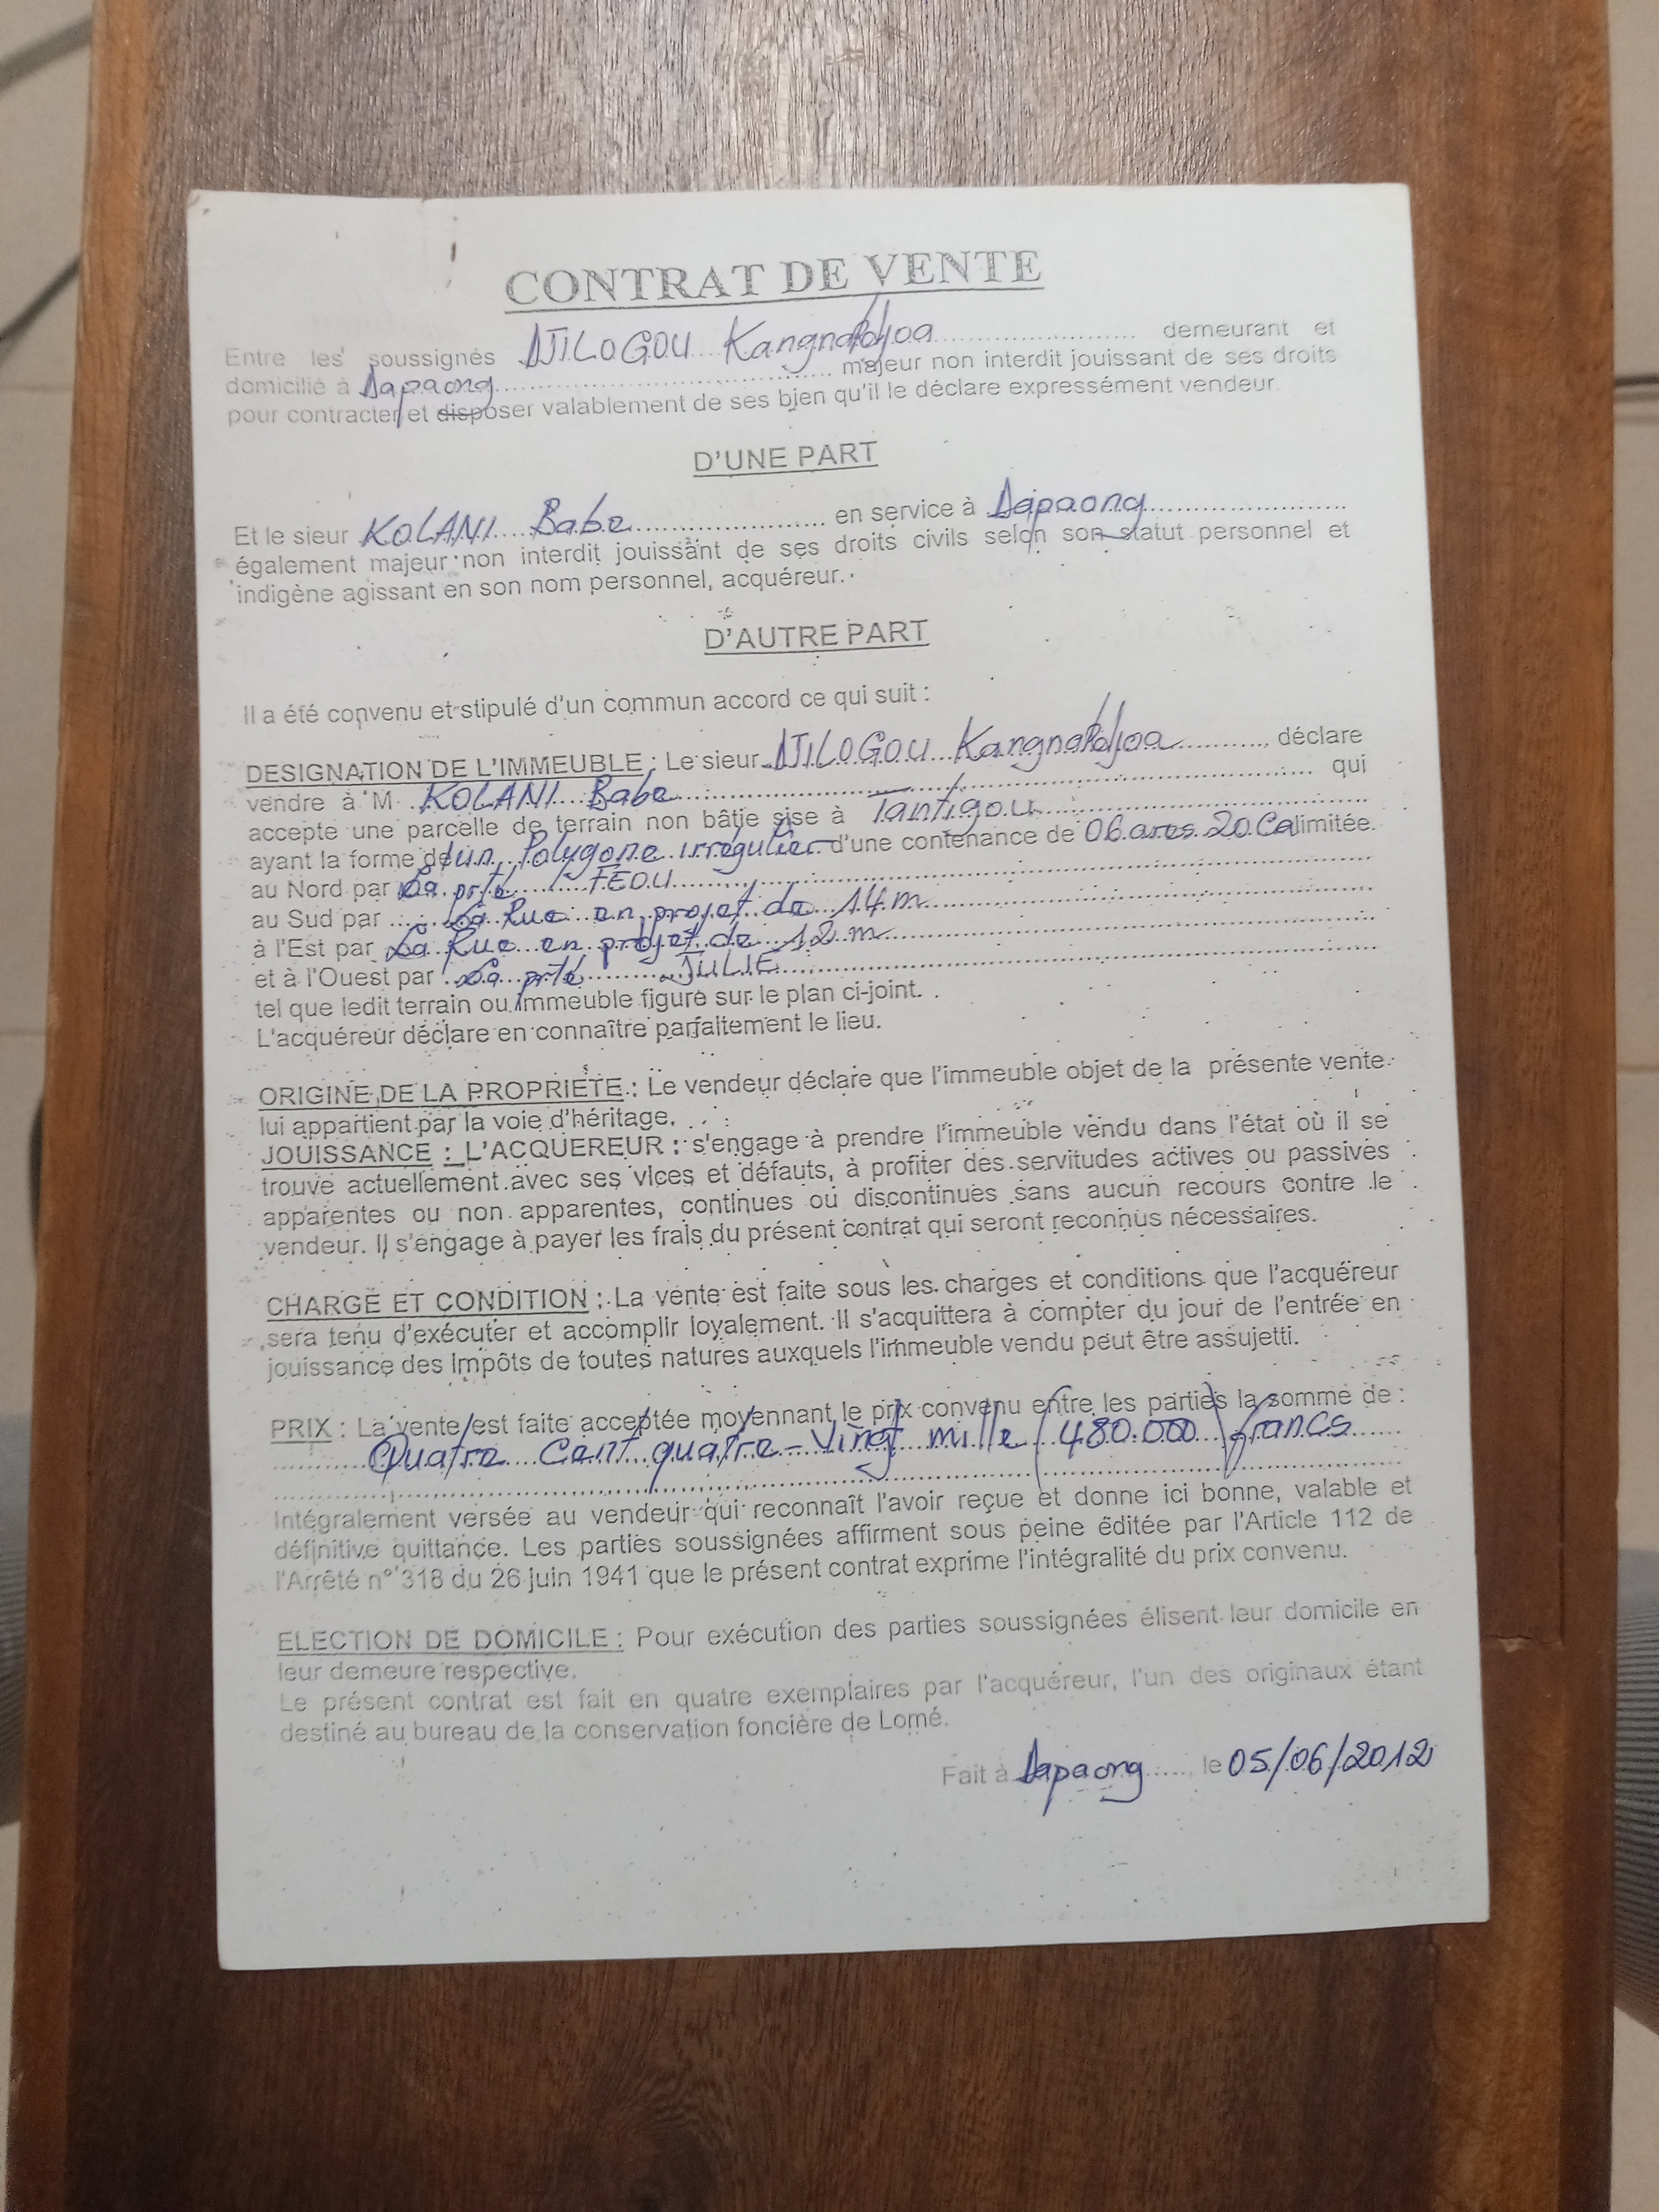 CONTRAT DE VENTE
Entre les soussignés DJILOGOU Kangnabdjoa demeurant et
domicilié à Dapaong majeur non interdit jouissant de ses droits
pour contracter et disposer valablement de ses bien qu'il le déclare expressément vendeur
D'UNE PART
Et le sieur KOLANI Babe en service à Dapaong
également majeur non interdit jouissant de ses droits civils selon son statut personnel et
indigène agissant en son nom personnel, acquéreur.
D'AUTRE PART
Il a été convenu et stipulé d'un commun accord ce qui suit :
DESIGNATION DE L'IMMEUBLE : Le sieur DJILOGOU déclare
vendre à M KOLANI Babe qui
accepte une parcelle de terrain non bâtie sise à Tantigou
ayant la forme d'un Polygone irrégulier d'une contenance de 06 ares 20 Ca limitée
au Nord par La prté FEOU
au Sud par La Rue en projet de 14 m
à l'Est par La Rue en projet de 12 m
et à l'Ouest par La prté JULIE
tel que ledit terrain ou immeuble figure sur le plan ci-joint.
L'acquéreur déclare en connaître parfaitement le lieu.
ORIGINE DE LA PROPRIETE : Le vendeur déclare que l'immeuble objet de la présente vente
lui appartient par la voie d'héritage.
JOUISSANCE : L'ACQUEREUR : s'engage à prendre l'immeuble vendu dans l'état où il se
trouve actuellement avec ses vices et défauts, à profiter des servitudes actives ou passives
apparentes ou non apparentes, continues ou discontinues sans aucun recours contre le
vendeur. Il s'engage à payer les frais du présent contrat qui seront reconnus nécessaires.
CHARGE ET CONDITION : La vente est faite sous les charges et conditions que l'acquéreur
sera tenu d'exécuter et accomplir loyalement. Il s'acquittera à compter du jour de l'entrée en
jouissance des Impôts de toutes natures auxquels l'immeuble vendu peut être assujetti.
PRIX : La vente est faite acceptée moyennant le prix convenu entre les parties la somme de :
Quatre Cent quatre-Vingt mille (480.000) francs
Intégralement versée au vendeur qui reconnaît l'avoir reçue et donne ici bonne, valable et
définitive quittance. Les parties soussignées affirment sous peine éditée par l'Article 112 de
l'Arrêté n° 318 du 26 juin 1941 que le présent contrat exprime l'intégralité du prix convenu.
ELECTION DE DOMICILE : Pour exécution des parties soussignées élisent leur domicile en
leur demeure respective.
Le présent contrat est fait en quatre exemplaires par l'acquéreur, l'un des originaux étant
destiné au bureau de la conservation foncière de Lomé.
Fait à Dapaong le 05/06/2012